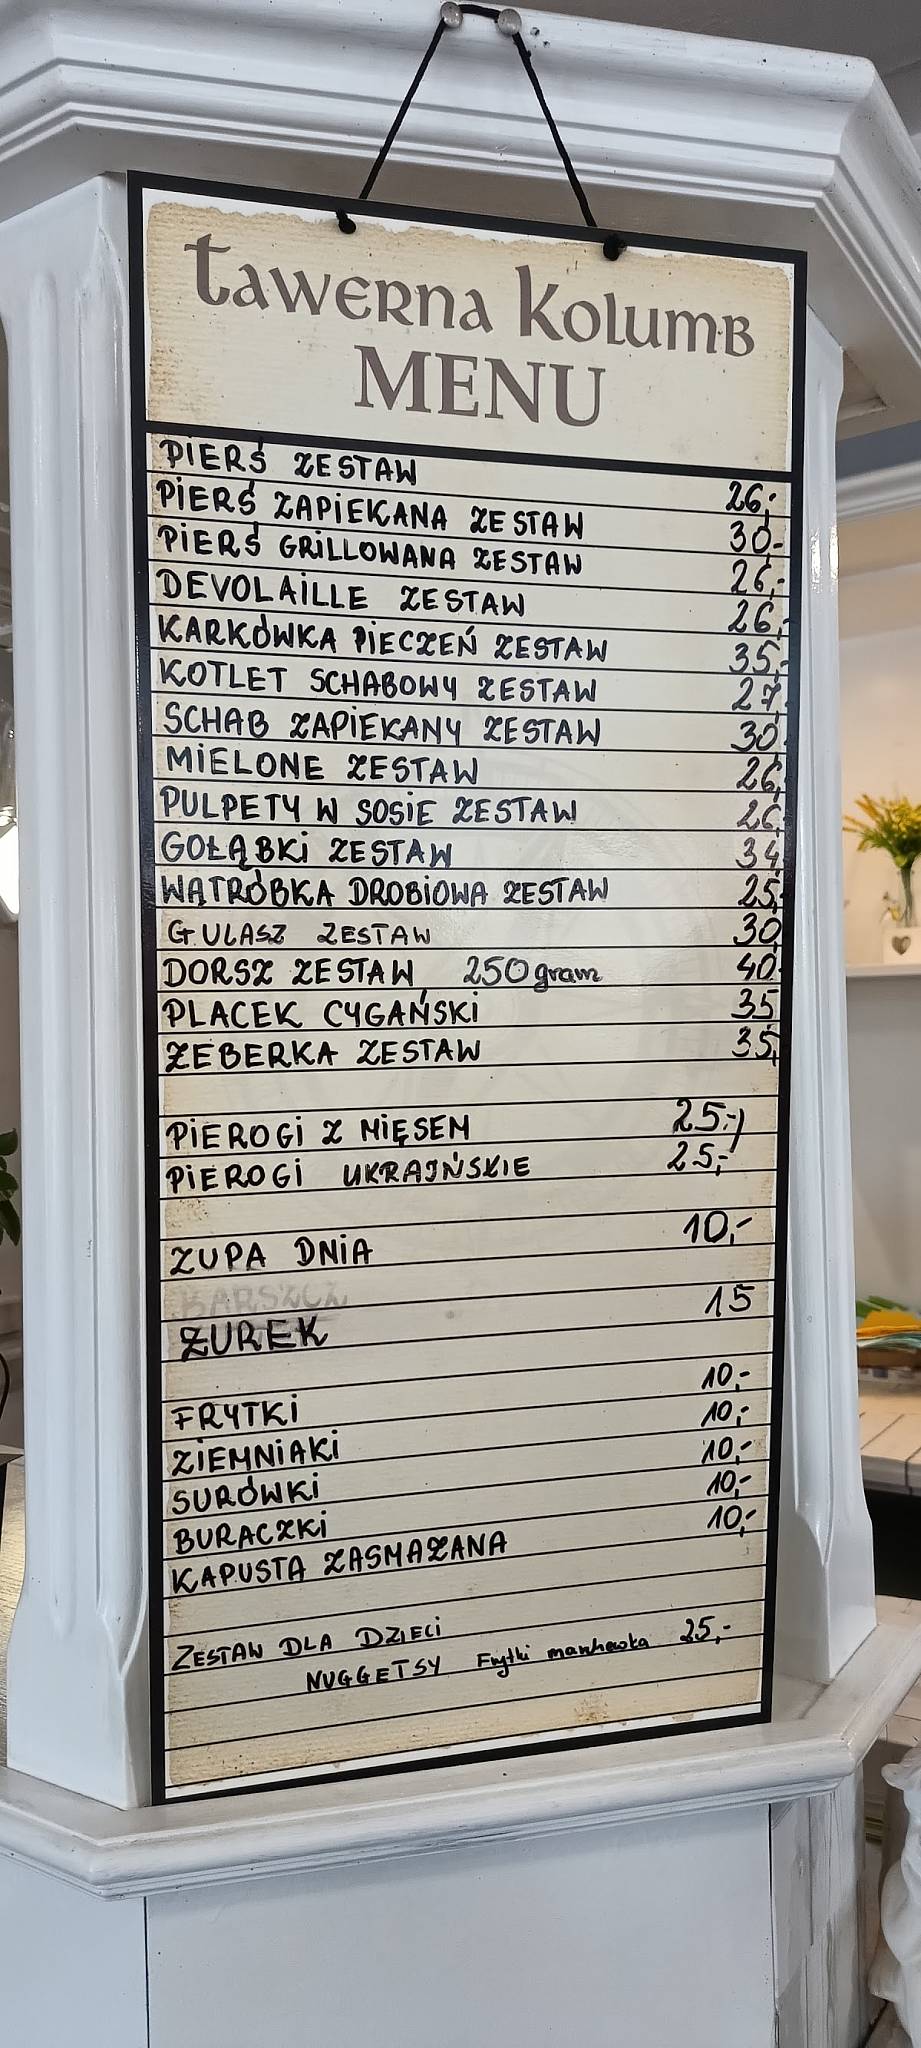 tawerna kolumb
MENU
PIERŚ ZESTAW 26,-
PIERŚ ZAPIEKANA ZESTAW 30,-
PIERŚ GRILLOWANA ZESTAW 26,-
DEVOLAILLE ZESTAW 26,-
KARKÓWKA PIECZEŃ ZESTAW 35,-
KOTLET SCHABOWY ZESTAW 27
SCHAB ZAPIEKANY ZESTAW 30
MIELONE ZESTAW 26,
PULPETY W SOSIE ZESTAW 26,
GOŁĄBKI ZESTAW 34
WĄTRÓBKA DROBIOWA ZESTAW 25,
GULASZ ZESTAW 30
DORSZ ZESTAW 250 gram 40
PLACEK CYGAŃSKI 35
ŻEBERKA ZESTAW 35,
PIEROGI Z MIĘSEM 25,-
PIEROGI UKRAIŃSKIE 25,-
ZUPA DNIA 10,-
BARSZCZ
ŻUREK 15
FRYTKI 10,-
ZIEMNIAKI 10,-
SURÓWKI 10,-
BURACZKI 10,-
KAPUSTA ZASMAŻANA 10,-
ZESTAW DLA DZIECI
NUGGETSY Frytki marchewka 25,-